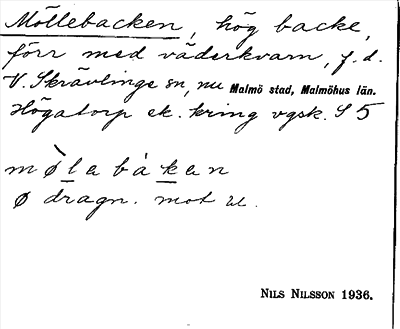 Möllebacken, hög backe,
förr med väderkvarn, f.d.
V. Skrävlinge sn, nu Malmö stad, Malmöhus län.
Högatorp ek. kring vgsk. S 5
mø̀labákan
ø dragn. mot u.
NILS NILSSON 1936.